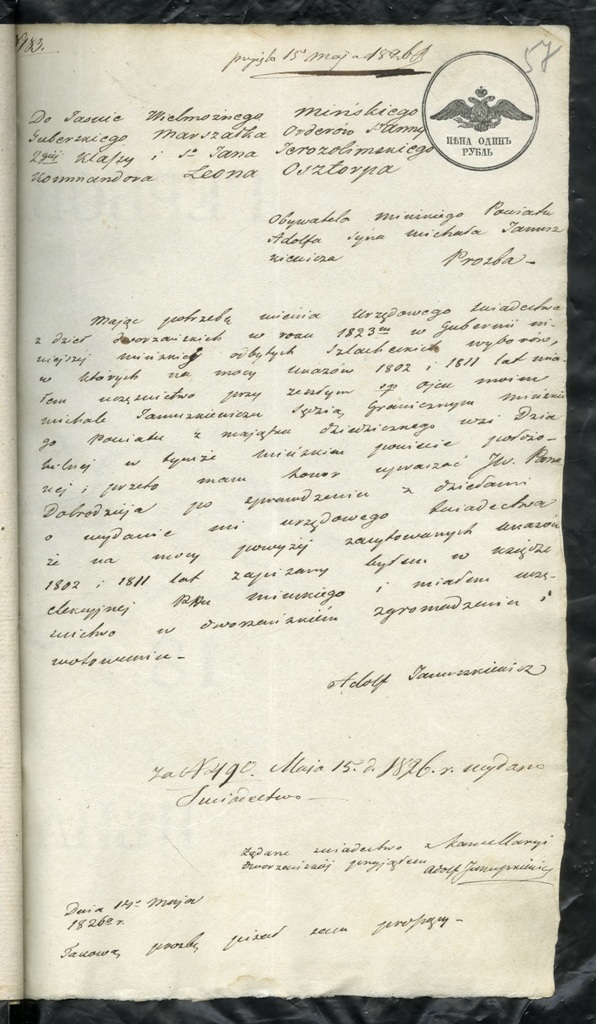 N 183.
57
przyięto 15 maja 1826 r
ЦѢНА ОДИНЪ
РУБЛЬ
Do Jaśnie Wielmożnego Mińskiego
Guberskiego Marszałka Orderów S. Anny
2giej klassy i S. Jana Jerozolimskiego
Kommandora Leona Osztorpa
Obywatela mińskiego Powiatu
Adolfa syna Michała Janusz
kiewicza
Prozba
Mając potrzebę mienia urzędowego świadectwa
z dzieł dworzańskich w roku 1823m w Gubernii ni-
niejszej mińskiej odbytych szlacheckich wyborów,
w których na mocy ukazów 1802 i 1811 lat mia-
łem uczęstnictwo przy zeszłym ojcu moim
Michale Januszkiewiczu Sędzią Granicznym mińskie
go Powiatu z majątku dziedzicznego wsi Dzia
hilnej w tymże mińskim powiecie położo-
nej; przeto mam honor upraszać JW. Pana
Dobrodzieja po sprawdzeniu z dziełami
o wydanie mi urzędowego świadectwa
że na mocy powyżej zacytowanych ukazów
1802 i 1811 lat zapisany byłem w xiędze
elekcyjnej Pttu mińskiego i miałem uczę-
stnictwo w dworzańskiém zgromadzeniu i
wotowaniu
Adolf Januszkiewicz
za N 490. Maja 15. d. 1826. r. wydano
Świadectwo
Żądane świadectwo z Kancellaryi
dworzańskiej przyjąłem Adolf Januszkiewicz
Dnia 14go Maja
1826 r.
Takową prozbę pisał sam proszący